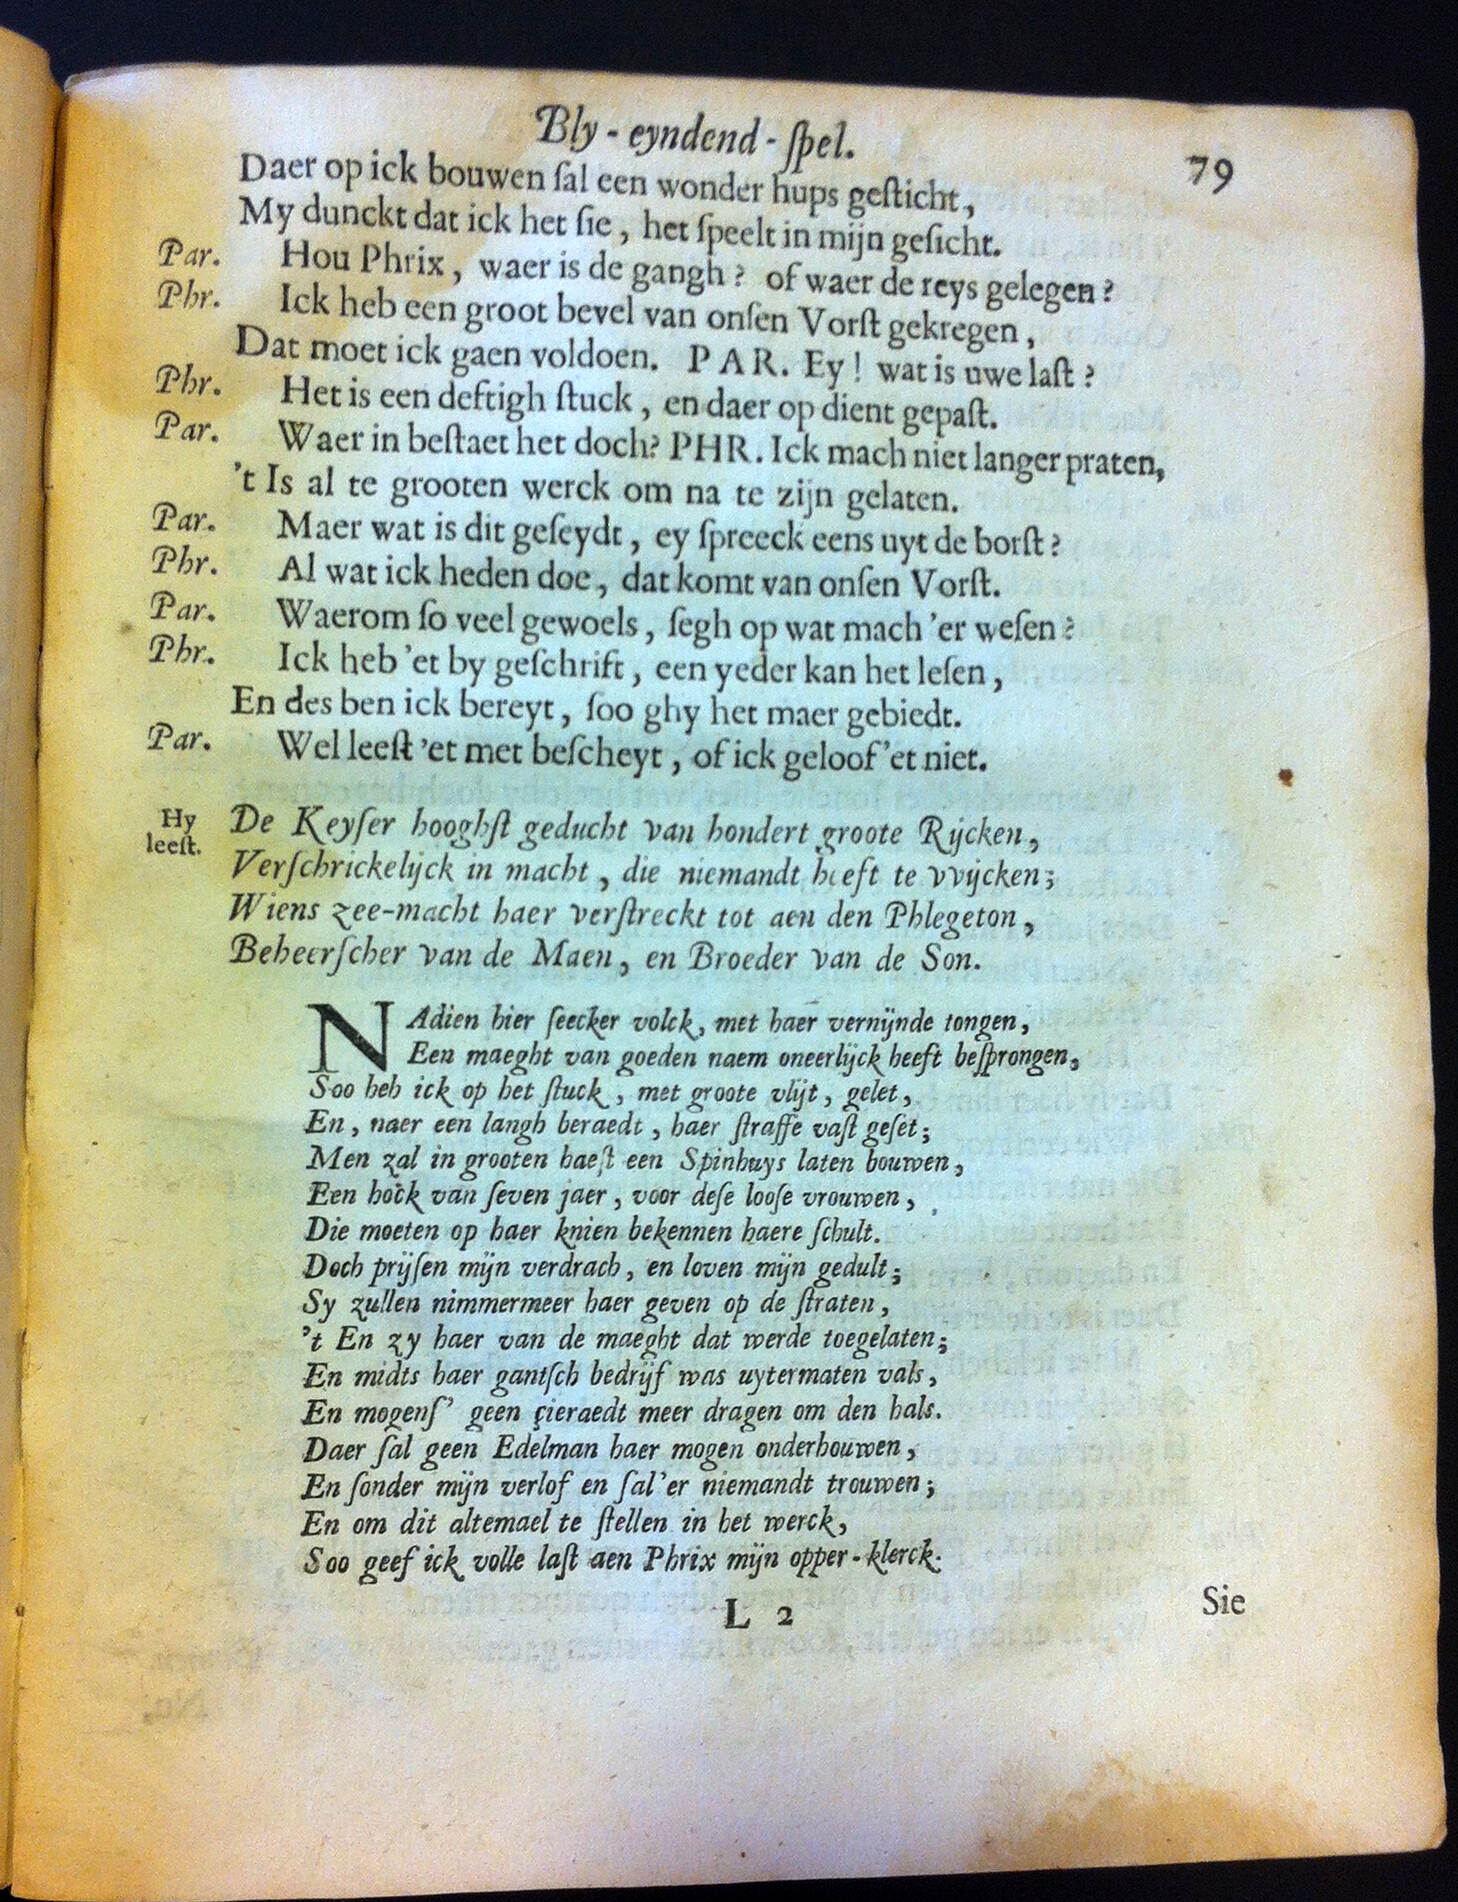 Bly-eyndend-ſpel. 79
Daer op ick bouwen ſal een wonder hups geſticht,
My dunckt dat ick het ſie, het ſpeelt in mijn geſicht.
Par. Hou Phrix, waer is de gangh? of waer de reys gelegen?
Phr. Ick heb een groot bevel van onſen Vorſt gekregen,
Dat moet ick gaen voldoen. PAR. Ey! wat is uwe laſt?
Phr. Het is een deftigh ſtuck, en daer op dient gepaſt.
Par. Waer in beſtaet het doch? PHR. Ick mach niet langer praten,
't Is al te grooten werck om na te zijn gelaten.
Par. Maer wat is dit geſeydt, ey ſpreeck eens uyt de borſt?
Phr. Al wat ick heden doe, dat komt van onſen Vorſt.
Par. Waerom ſo veel gewoels, ſegh op wat mach 'er weſen?
Phr. Ick heb 'et by geſchrift, een yeder kan het leſen,
En des ben ick bereyt, ſoo ghy het maer gebiedt.
Par. Wel leeſt 'et met beſcheyt, of ick geloof 'et niet.
Hy leeſt. De Keyſer hooghſt geducht van hondert groote Rijcken,
Verſchrickelijck in macht, die niemandt heeft te vvijcken;
Wiens zee-macht haer verſtreckt tot aen den Phlegeton,
Beheerſcher van de Maen, en Broeder van de Son.
NAdien hier ſeecker volck, met haer vernijnde tongen,
Een maeght van goeden naem oneerlijck heeft beſprongen,
Soo heb ick op het ſtuck, met groote vlijt, gelet,
En, naer een langh beraedt, haer ſtraffe vaſt geſet;
Men zal in grooten haeſt een Spinhuys laten bouwen,
Een hock van ſeven jaer, voor deſe looſe vrouwen,
Die moeten op haer knien bekennen haere ſchult.
Doch prijſen mijn verdrach, en loven mijn gedult;
Sy zullen nimmermeer haer geven op de ſtraten,
't En zy haer van de maeght dat werde toegelaten;
En midts haer gantſch bedrijf was uytermaten vals,
En mogenſ' geen çieraedt meer dragen om den hals.
Daer ſal geen Edelman haer mogen onderhouwen,
En ſonder mijn verlof en ſal'er niemandt trouwen;
En om dit altemael te ſtellen in het werck,
Soo geef ick volle laſt aen Phrix mijn opper-klerck.
L 2 Sie